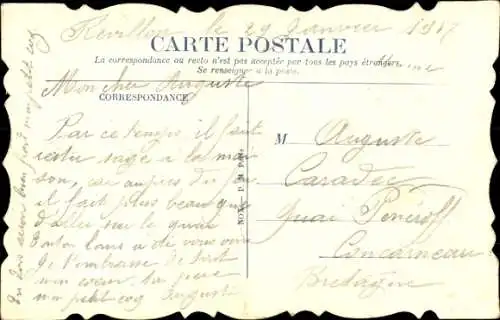 Révillon le 29 Janvier 1917
CARTE POSTALE
La correspondance au recto n'est pas acceptée par tous les pays étrangers.
Se renseigner à la poste.
Mon cher Auguste
CORRESPONDANCE
Par ce temps il faut
rester sage à la mai
son, car auprès du feu
il fait plus beau que
d'aller sur le quai
Tonton Louis a été vous voir
Je t'embrasse de tout
mon coeur, ton père
mon petit coq Auguste
Tu dois être bien fort mon petit coq
M Auguste
Caradec
Quai Peneroff
Concarneau
Bretagne